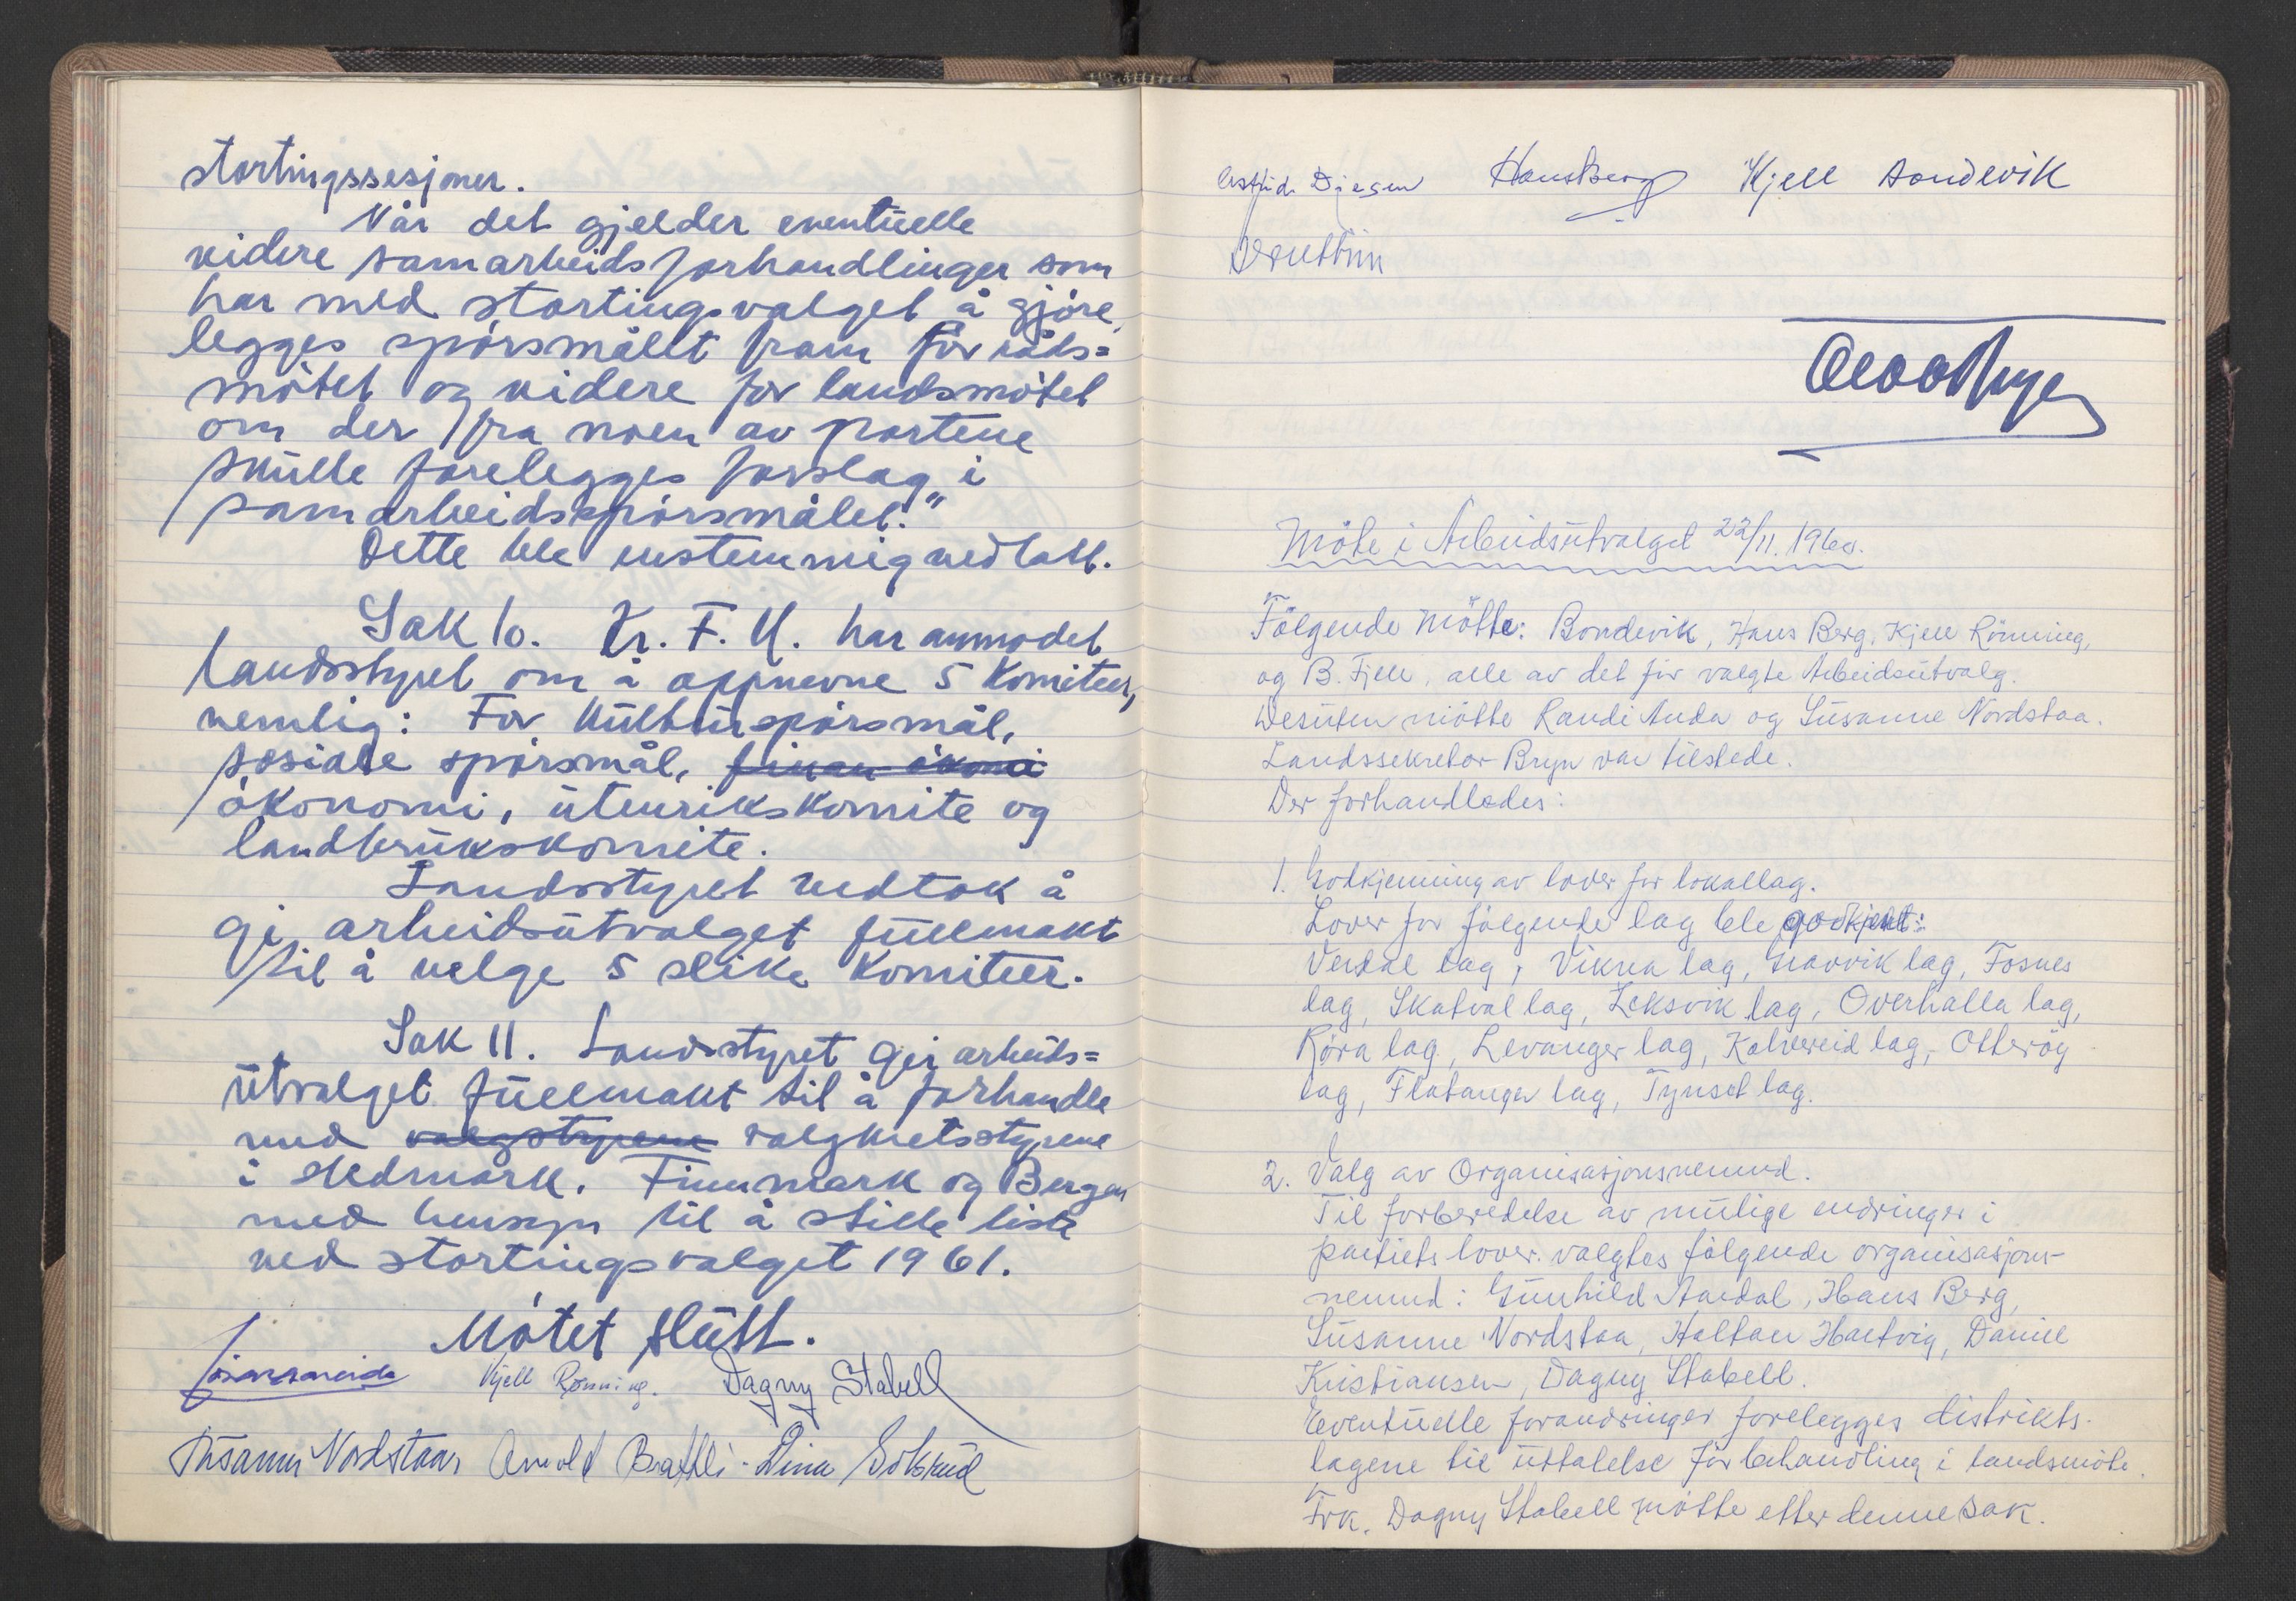 stortingssesjoner.
Når det gjelder eventuelle
videre samarbeidsforhandlinger som
har med stortingsvalget å gjøre,
legges spørsmålet fram for råds=
møtet og videre for landsmøtet
om der fra noen av partene
skulle forelegges forslag i
samarbeidsspørsmålet."
Dette ble enstemmig vedtatt.
Sak 10. Kr. F. U. har anmodet
landsstyret om å oppnevne 5 komiteer,
nemlig: For kulturspørsmål,
sosiale spørsmål, finan økonoi
økonomi, utenrikskomite og
landbrukskomite.
Landsstyret vedtok å
gi arbeidsutvalget fullmakt
til å velge 5 slike komiteer.
Sak 11. Landsstyret gir arbeids=
utvalget fullmakt til å forhandle
med valgstyrene valgkretsstyrene
i Hedmark, Finnmark og Bergen
med hensyn til å stille liste
ved stortingsvalget 1961.
Møtet slutt.
Kjell Rønning. Dagny Stabell
Susanne Nordstaa Arnold Brathli - Dina
Hans Berg Kjell Bondevik
Møte i Arbeidsutvalget 22/11. 1960.
Følgende møtte: Bondevik, Hans Berg, Kjell Rønning,
og B. Fjell, alle av det før valgte Arbeidsutvalg.
Desuten møtte Randi Anda og Susanne Nordstaa.
Landssekretær Bryn var tilstede.
Der forhandledes:
1. Godkjenning av lover for lokallag.
Lover for følgende lag ble godkjent:
Verdal lag, Vikna lag, Gravvik lag, Fosnes
lag, Skatval lag, Leksvik lag, Overhalla lag,
Røra lag, Levanger lag, Kolvereid lag, Otterøy
lag, Flatanger lag, Tynset lag.
2. Valg av Organisasjonsnemnd.
Til forberedelse av mulige endringer i
partiets lover valgtes følgende organisasjons-
nemnd: Gunhild Aardal, Hans Berg,
Susanne Nordstaa, Haltan Hartvig, Daniel
Kristiansen, Dagny Stabell.
Eventuelle forandringer forelegges distrikts-
lagene til uttalelse før behandling i landsmøte.
Frk. Dagny Stabell møtte etter denne sak.